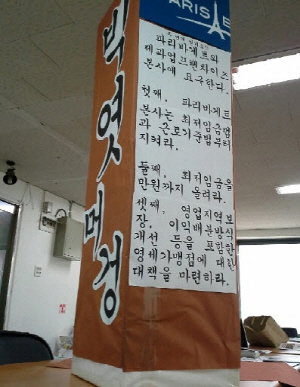 빅엿먹경
PARIS
파리바게트와
제과업프랜차이즈
본사에 요구한다.
첫째, 파리바게트
본사는 최저임금법
과 근로기준법부터
지켜라.
둘째, 최저임금을
만원까지 올려라.
셋째, 영업지역보
장, 이익배분방식
개선 등을 포함한
영세가맹점에 대한
대책을 마련하라.